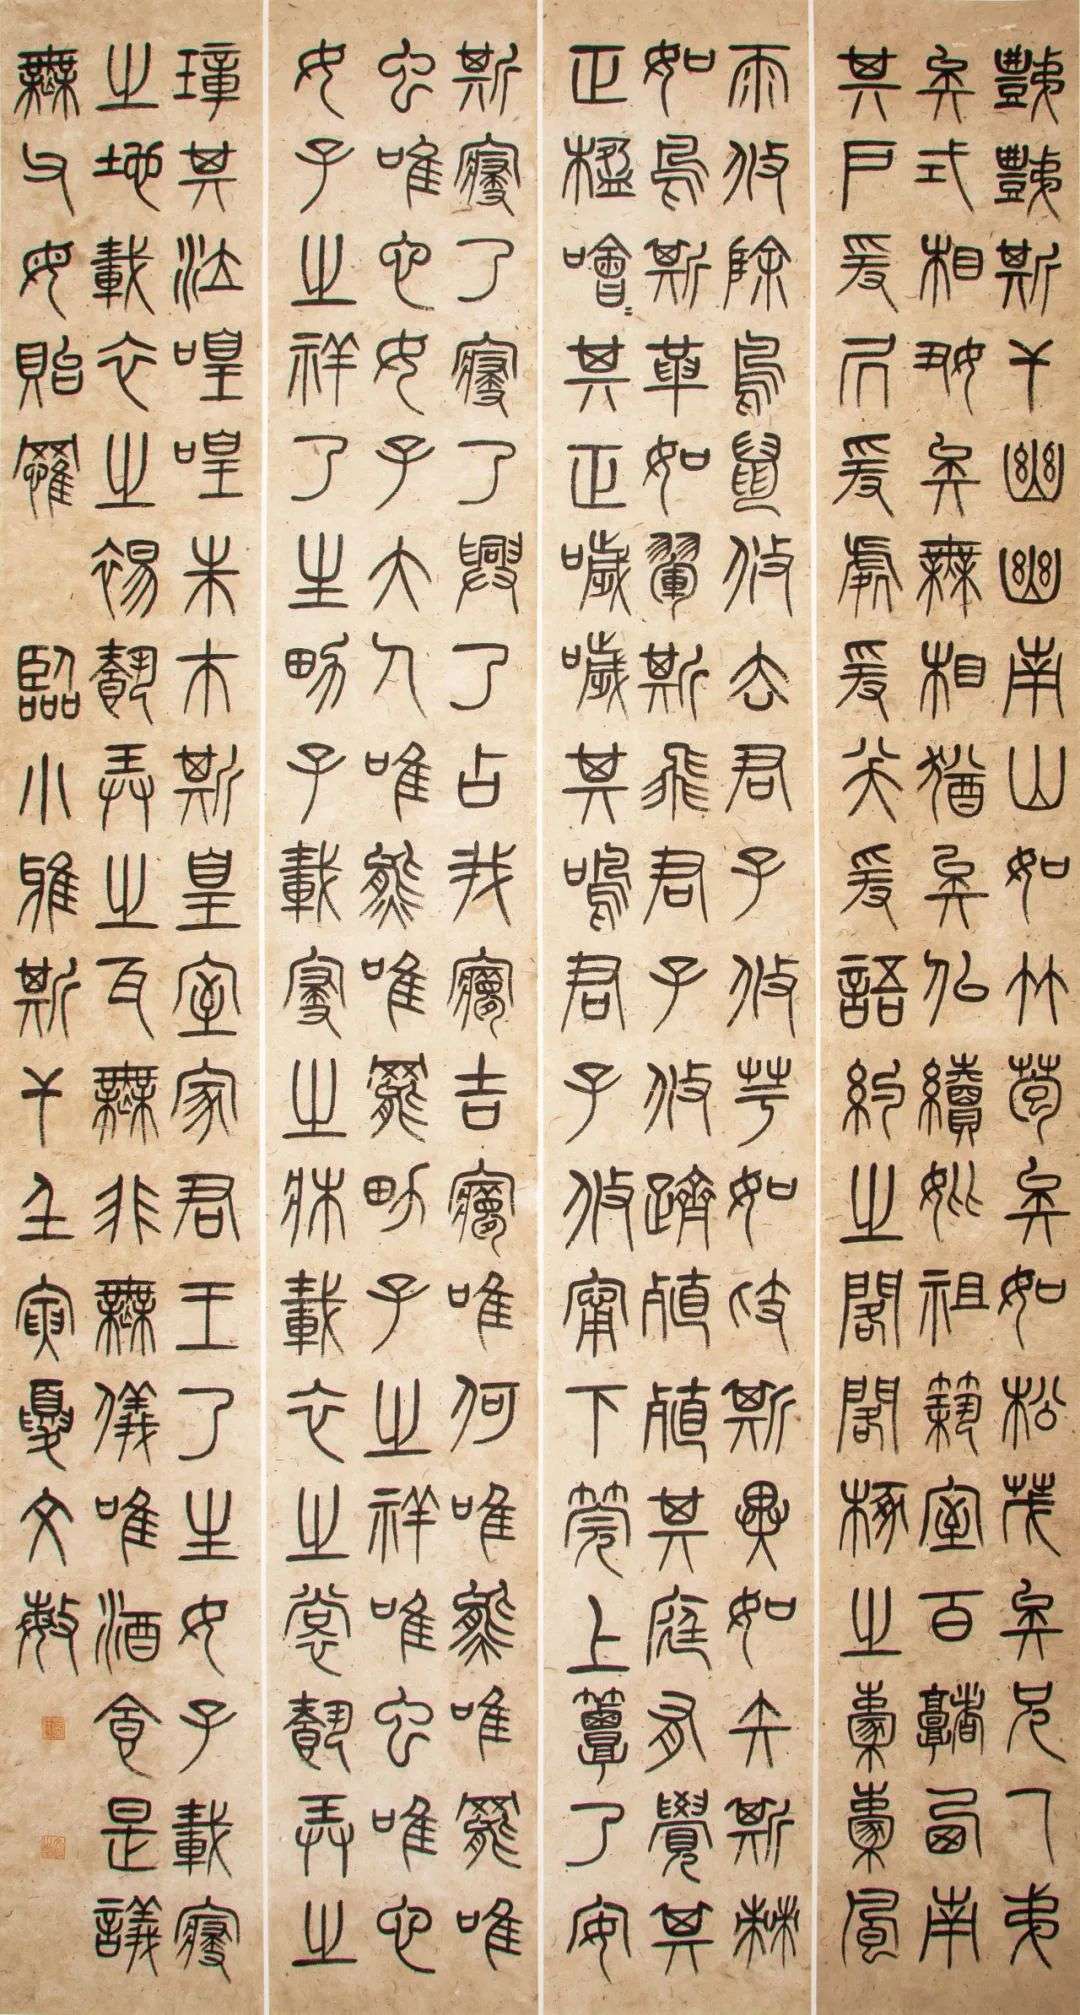 豑豑斯干幽幽南山如竹苞矣如松茂矣兄及弟
矣式相好矣無相猶矣佀續妣祖築室百堵西南
其戶爰居爰處爰笑爰語約之閣閣椓之橐橐風
雨攸除鳥鼠攸去君子攸芋如跂斯翼如矢斯棘
如鳥斯革如翬斯飛君子攸躋殖殖其庭有覺其
正楹噲=其正噦噦其鳴君子攸寧下莞上簟乃安
斯寑乃寑乃興乃占我夢吉夢唯何唯熊唯羆唯
虫唯它女子大人唯熊唯羆男子之祥唯虫唯它
女子之祥乃生男子載寑之牀載衣之裳載弄之
璋其泣喤喤朱巿斯皇室家君王乃生女子載寑
之地載衣之裼載弄之瓦無非無儀唯酒食是議
無父母貽罹 臨小雅斯干壬寅夏文敏